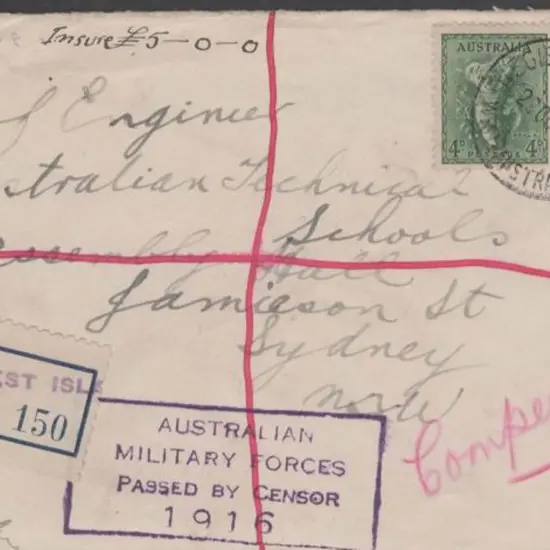 Insure £5-0-0
AUSTRALIA
4D 4D
POSTAGE
Engineer
stralian Technical
Schools
Assembly Hall
Jamieson St
Sydney
EST ISL
150
Compe
AUSTRALIAN
MILITARY FORCES
PASSED BY CENSOR
1916